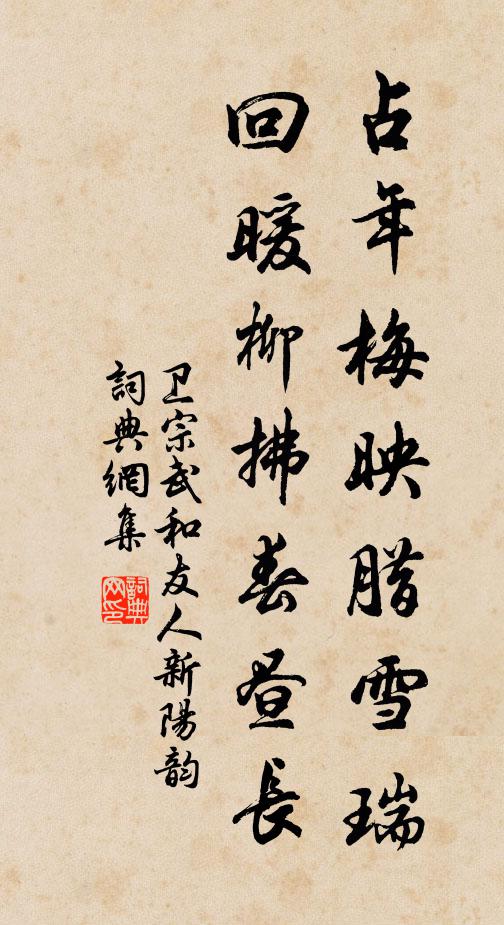 占年梅映腊雪瑞
回暖柳拂春昼長
卫宗武和友人新陽韵
詞典網集
詞典網印